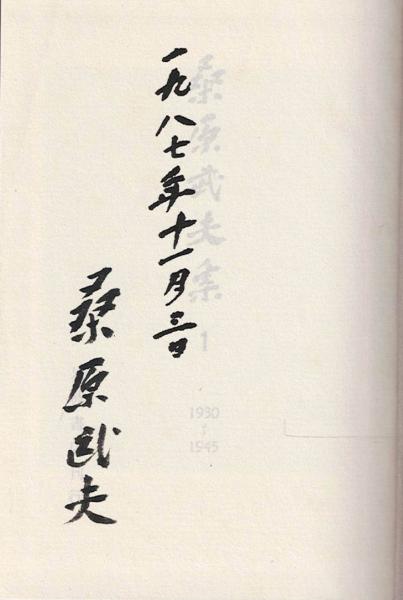 一九八七年十一月三日
桑原武夫
桑原武夫集
1
1930
1945